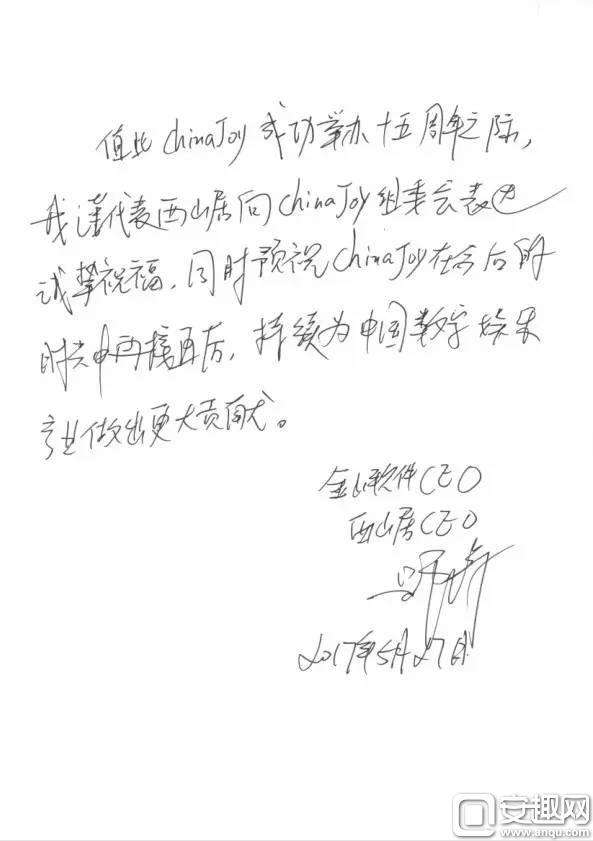 值此ChinaJoy成功举办十五周年之际，
我谨代表西山居向ChinaJoy组委会表达
诚挚祝福，同时预祝ChinaJoy在今后的
时光中再接再厉，持续为中国数字娱乐
产业做出更大贡献。
金山软件CEO
西山居CEO
2017年5月27日
安趣网
www.anqu.com